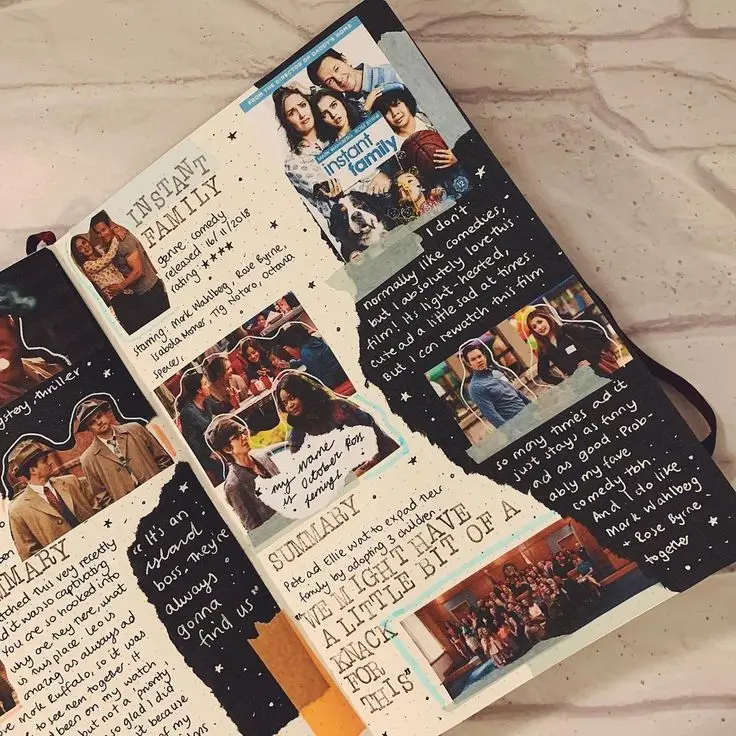 ystery thriller
MMARY
tched this very recently
d it was so captivating
You are so hooked into
why are they here, what
is this place. Leo is
amazing as always ad
ve Mark Ruffalo, so it was
to see them together. It
d been on my watch
but not a priority,
so glad I did
it because
of my
"It's an
island
boss. They're
always
gonna
find us"
INSTANT
FAMILY
genre: comedy
released: 16/11/2018
rating: ★★★★
starring: Mark Wahlberg, Rose Byrne,
Isabela Moner, Tig Notaro, Octavia
Spencer
my name
is October
SUMMARY
Pete ad Ellie wat to expad their
family by adopting 3 children
"WE MIGHT HAVE
A LITTLE BIT OF A
KNACK
FOR
THIS"
FROM THE DIRECTOR OF DADDY'S HOME
MARK WAHLBERG ROSE BYRNE
instant
family
12
I don't
normally like comedies,
but I absolutely love this
film! Its light-hearted,
cute ad a little sad at times.
But I can rewatch this film
so many times ad it
just stays as funny
ad as good. Prob-
ably my fave
comedy tbh.
And I do like
Mark Wahlberg
+ Rose Byrne
together